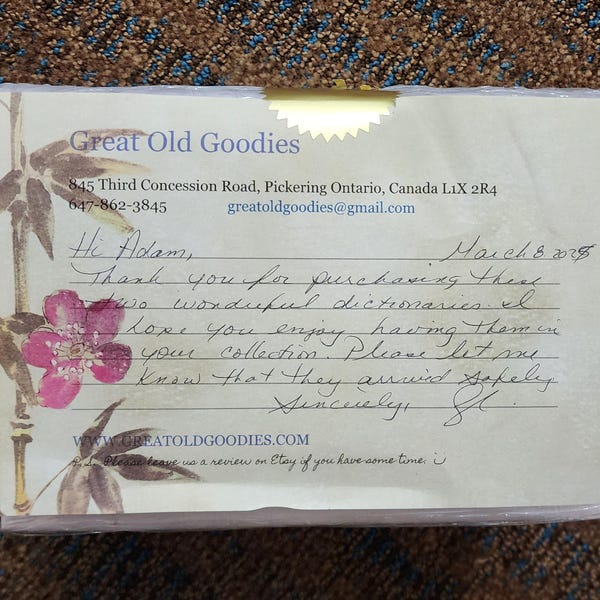 Great Old Goodies
845 Third Concession Road, Pickering Ontario, Canada L1X 2R4
647-862-3845 greatoldgoodies@gmail.com
Hi Adam, March 8 2025
Thank you for purchasing these
two wonderful dictionaries. I
hope you enjoy having them in
your collection. Please let me
know that they arrived safely
Sincerely,
WWW.GREATOLDGOODIES.COM
P.S. Please leave us a review on Etsy if you have some time. :)